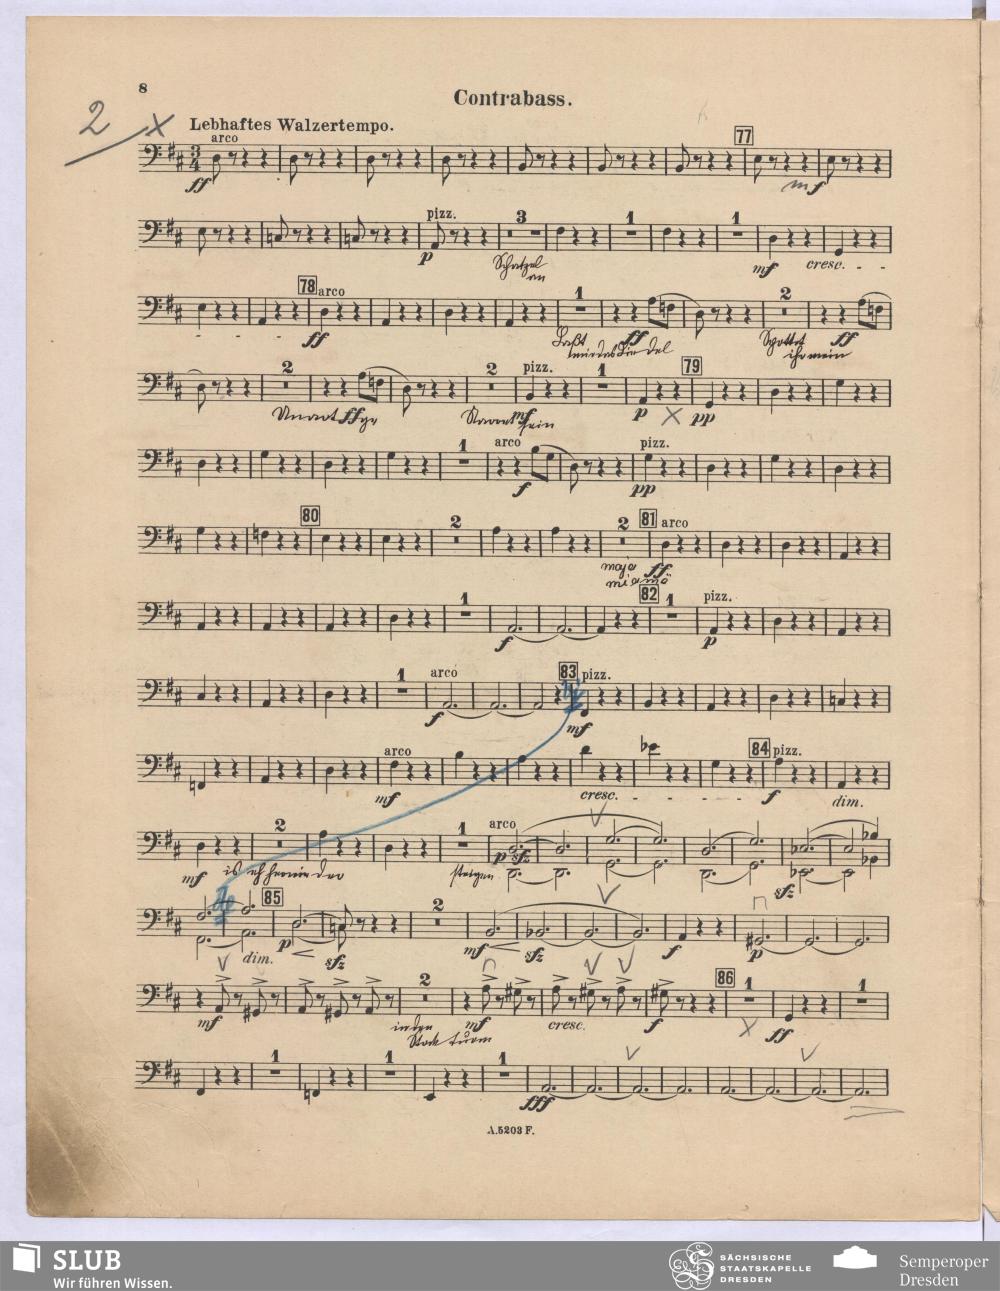 8
Contrabass.
2 x
Lebhaftes Walzertempo.
arco
77
ff
mf
pizz.
3 1 1
p
mf cresc.
78 arco
1 2
ff ff ff
2 2 pizz. 1 79
ff mf p pp
1 arco pizz.
f pp
80 2 2 81 arco
ff
1 82 1 pizz.
f p
1 arco 83 pizz.
f mf
arco 84 pizz.
mf cresc. f dim.
2 1 arco
mf p sfz sfz
85 2
dim. p sfz mf sfz f p
2 86 1 1
mf mf cresc. f ff
in den
1 1 1
fff
A.5203 F.
SLUB
Wir führen Wissen.
SÄCHSISCHE
STAATSKAPELLE
DRESDEN
Semperoper
Dresden